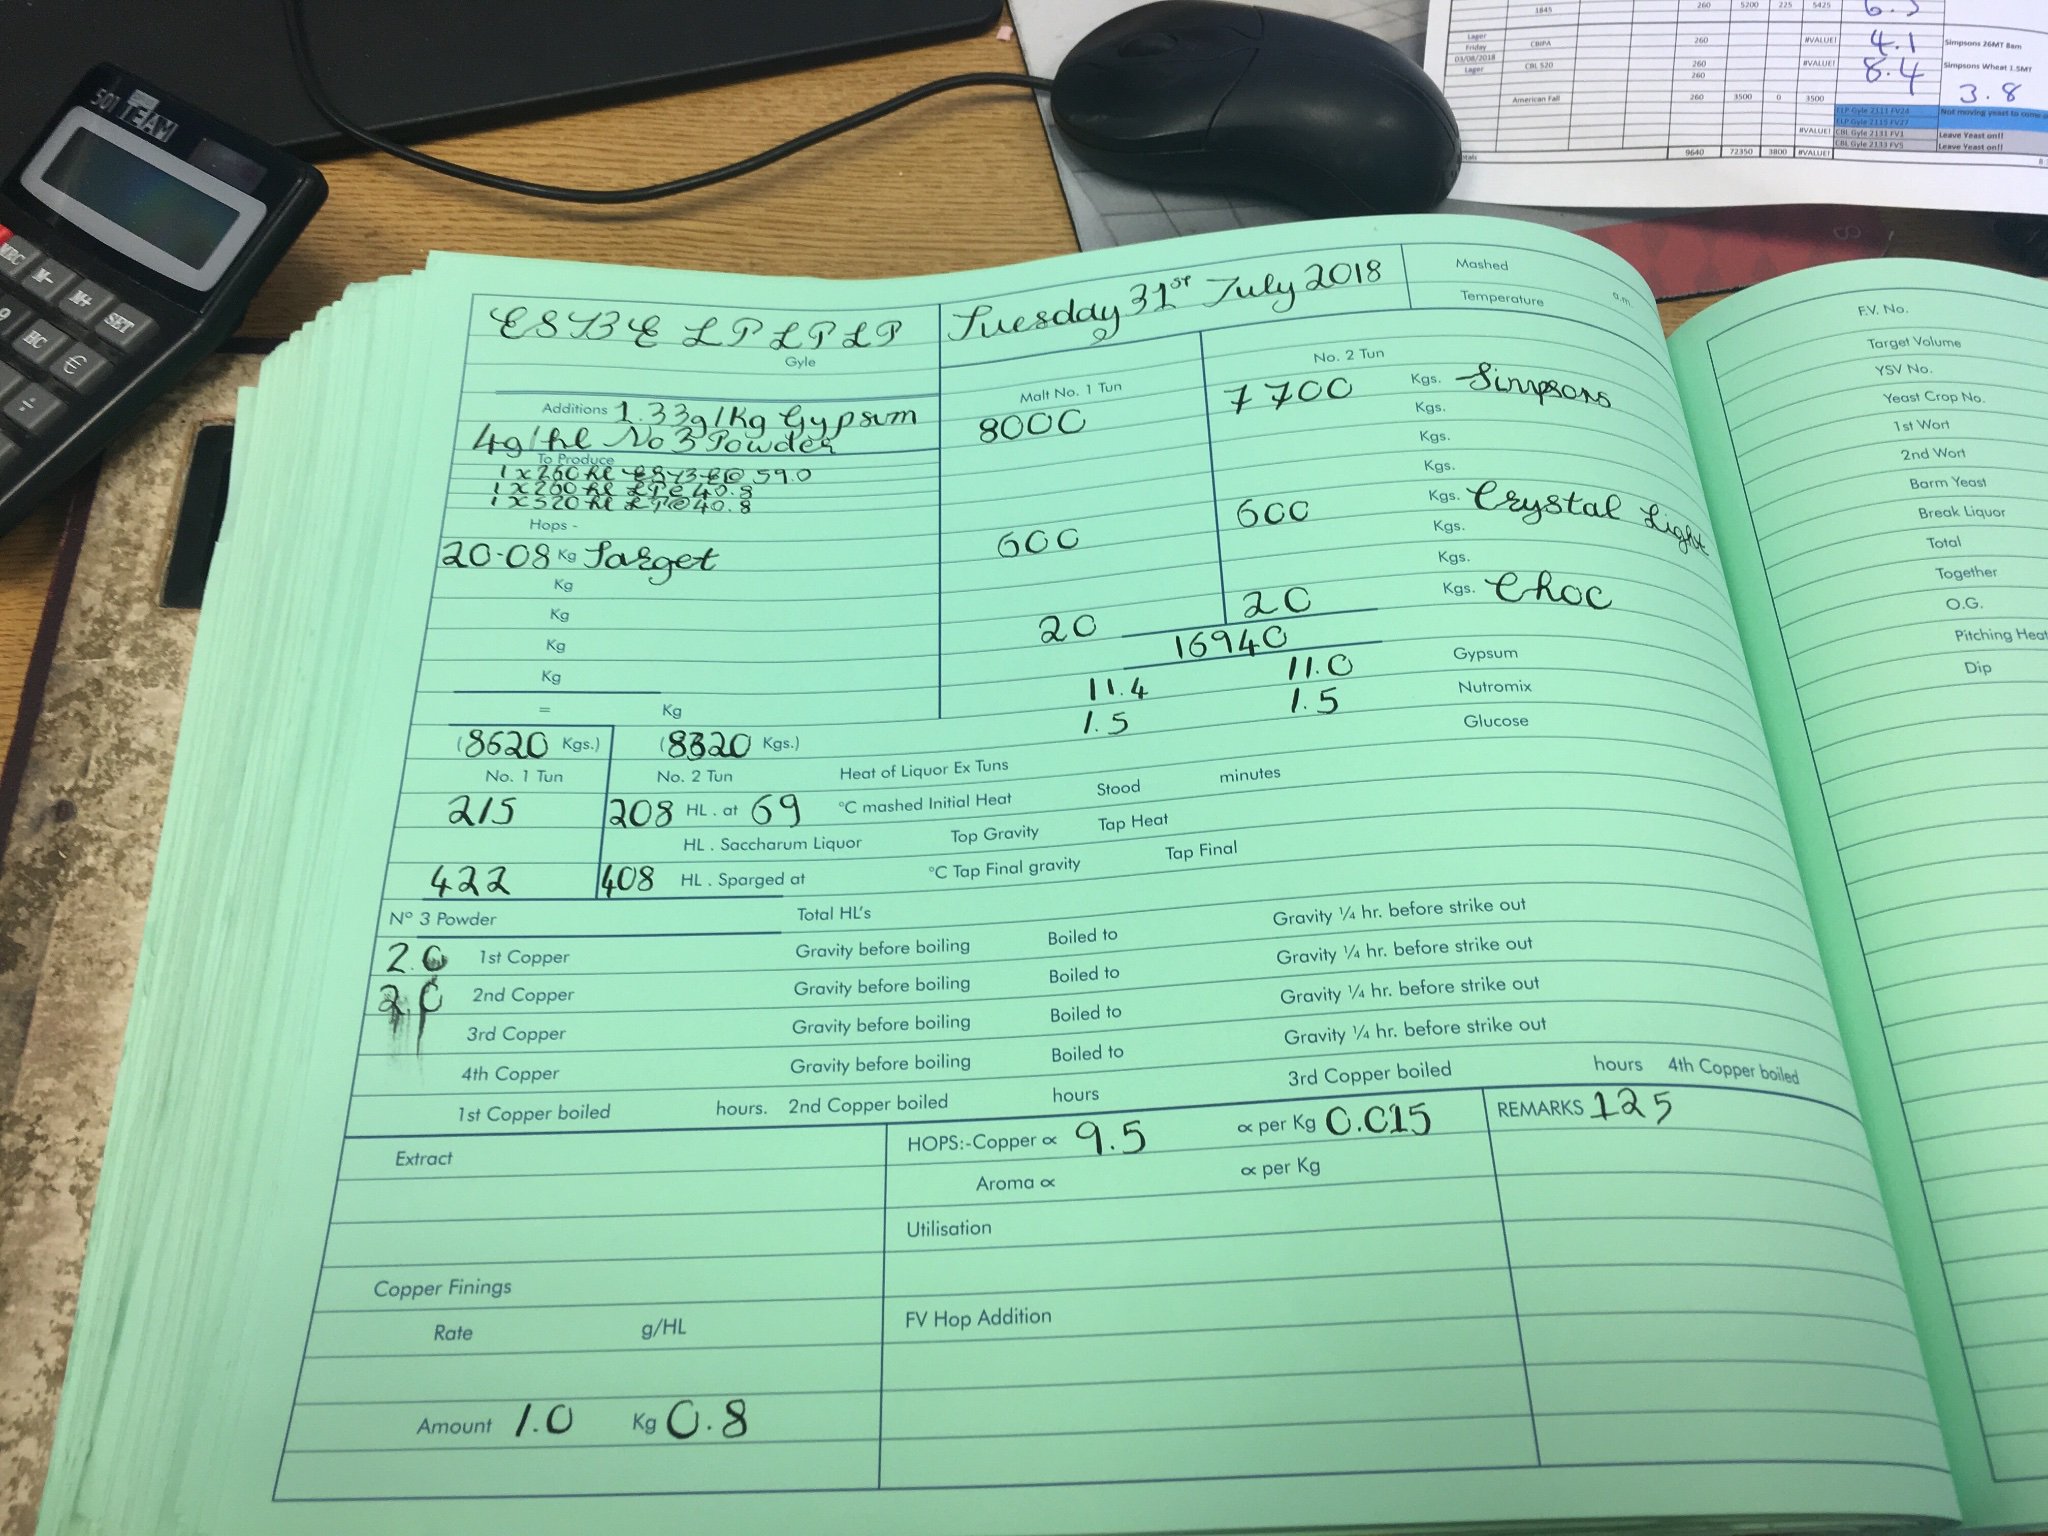 501 TEAM
MRC M- M+ SET
9 HC €
÷
1845 260 5200 225 5425 6.3
Lager
Friday CBIPA 260 #VALUE! 4.1 Simpsons 26MT 8am
03/08/2018
Lager CBL 520 260 #VALUE! 8.4 Simpsons Wheat 1.5MT
260
3.8
American Fall 260 3500 0 3500
ELP Gyle 2111 FV24 Not moving yeast to come
ELP Gyle 2115 FV27
#VALUE! CBL Gyle 2131 FV1 Leave Yeast on!!
CBL Gyle 2133 FV5 Leave Yeast on!!
9640 72350 3800 #VALUE!
ESBE LP LP LP
Gyle
Tuesday 31st July 2018
Mashed a.m.
Temperature
Additions 1.33g/Kg Gypsum
4g/hl No 3 Powder
To Produce
1 x 260 hl ESBE @ 59.0
1 x 260 hl LP @ 40.8
1 x 520 hl LP @ 40.8
Hops -
20.08 Kg Target
Kg
Kg
Kg
Kg
= Kg
Malt No. 1 Tun No. 2 Tun
8000 7700 Kgs. Simpsons
Kgs.
Kgs.
Kgs.
600 600 Kgs. Crystal Light
Kgs.
Kgs.
20 20 Kgs. Choc
16940
11.4 11.0 Gypsum
1.5 1.5 Nutromix
Glucose
(8620 Kgs.) (8320 Kgs.)
No. 1 Tun No. 2 Tun Heat of Liquor Ex Tuns
215 208 HL. at 69 °C mashed Initial Heat Stood minutes
HL. Saccharum Liquor Top Gravity Tap Heat
422 408 HL. Sparged at °C Tap Final gravity Tap Final
N° 3 Powder Total HL's
2.0 1st Copper Gravity before boiling Boiled to Gravity ¼ hr. before strike out
2.0 2nd Copper Gravity before boiling Boiled to Gravity ¼ hr. before strike out
3rd Copper Gravity before boiling Boiled to Gravity ¼ hr. before strike out
4th Copper Gravity before boiling Boiled to Gravity ¼ hr. before strike out
1st Copper boiled hours. 2nd Copper boiled hours 3rd Copper boiled hours 4th Copper boiled
Extract
HOPS:-Copper ∝ 9.5 ∝ per Kg 0.015
Aroma ∝ ∝ per Kg
Utilisation
REMARKS 125
Copper Finings
Rate g/HL
FV Hop Addition
Amount 1.0 Kg 0.8
F.V. No.
Target Volume
YSV No.
Yeast Crop No.
1st Wort
2nd Wort
Barm Yeast
Break Liquor
Total
Together
O.G.
Pitching Heat
Dip